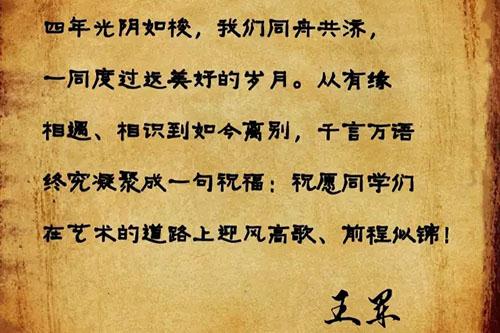 四年光阴如梭，我们同舟共济，
一同度过这美好的岁月。从有缘
相遇、相识到如今离别，千言万语
终究凝聚成一句祝福：祝愿同学们
在艺术的道路上迎风高歌、前程似锦！
王